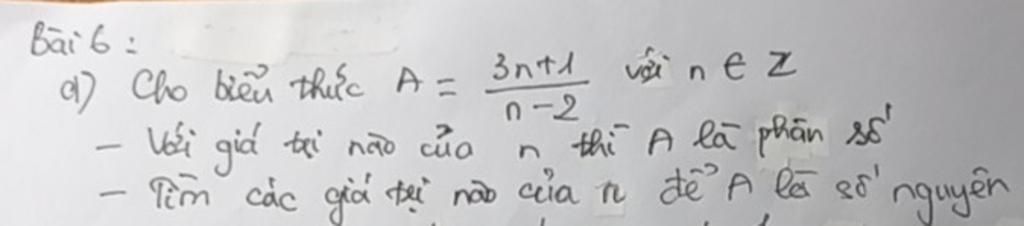 Bài 6:
a) Cho biểu thức A = \frac{3n+1}{n-2} với n ∈ Z
- Với giá trị nào của n thì A là phân số
- Tìm các giá trị nào của n để A là số nguyên